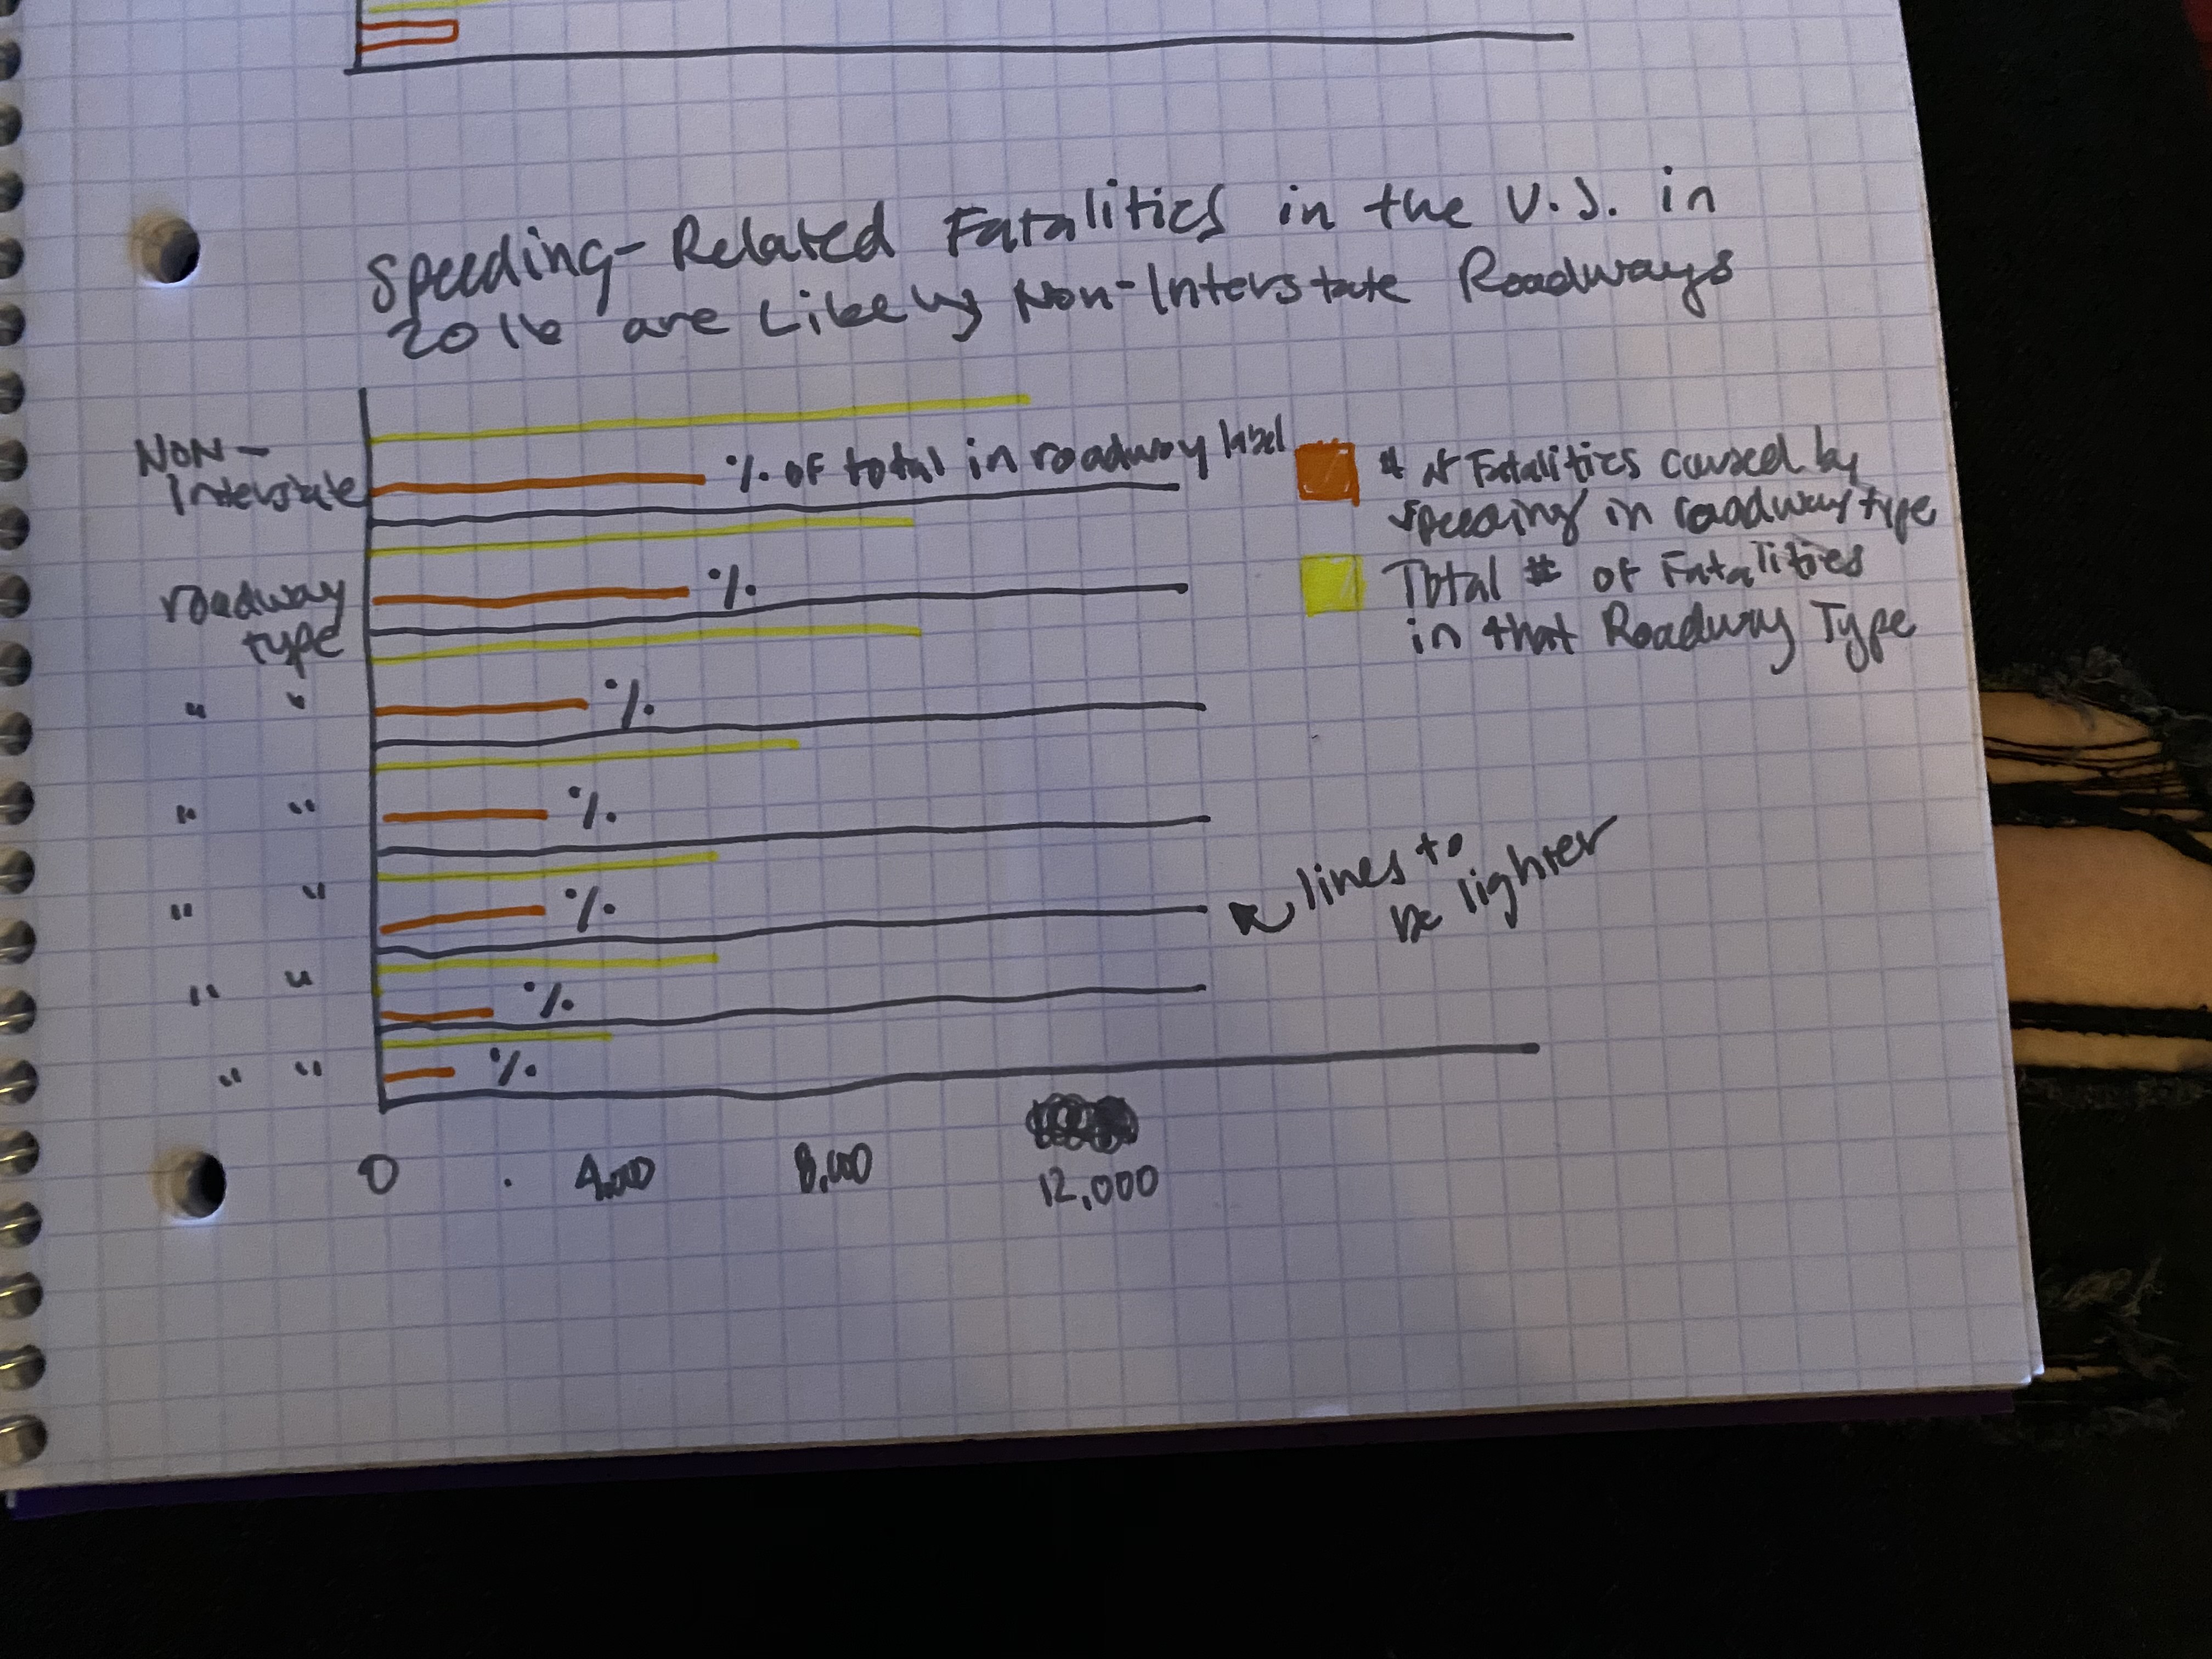 Speeding-Related Fatalities in the U.S. in
2016 are Likely Non-Interstate Roadways
Non-
Interstate
% of total in roadway label
# of Fatalities caused by
speeding in roadway type
Total # of Fatalities
in that Roadway Type
roadway
type
%
" "
%
" "
%
" "
%
" "
%
" "
%
lines to
be lighter
0 4,000 8,000 12,000